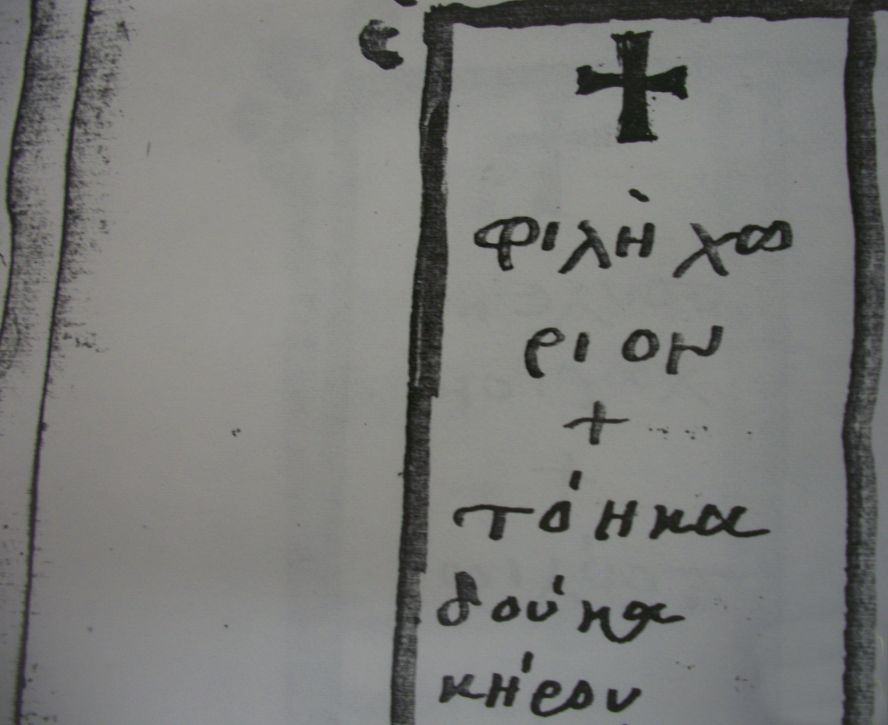 ✚
φιλὴ χω
ριον
+
τόηκα
δούκα
κήρου